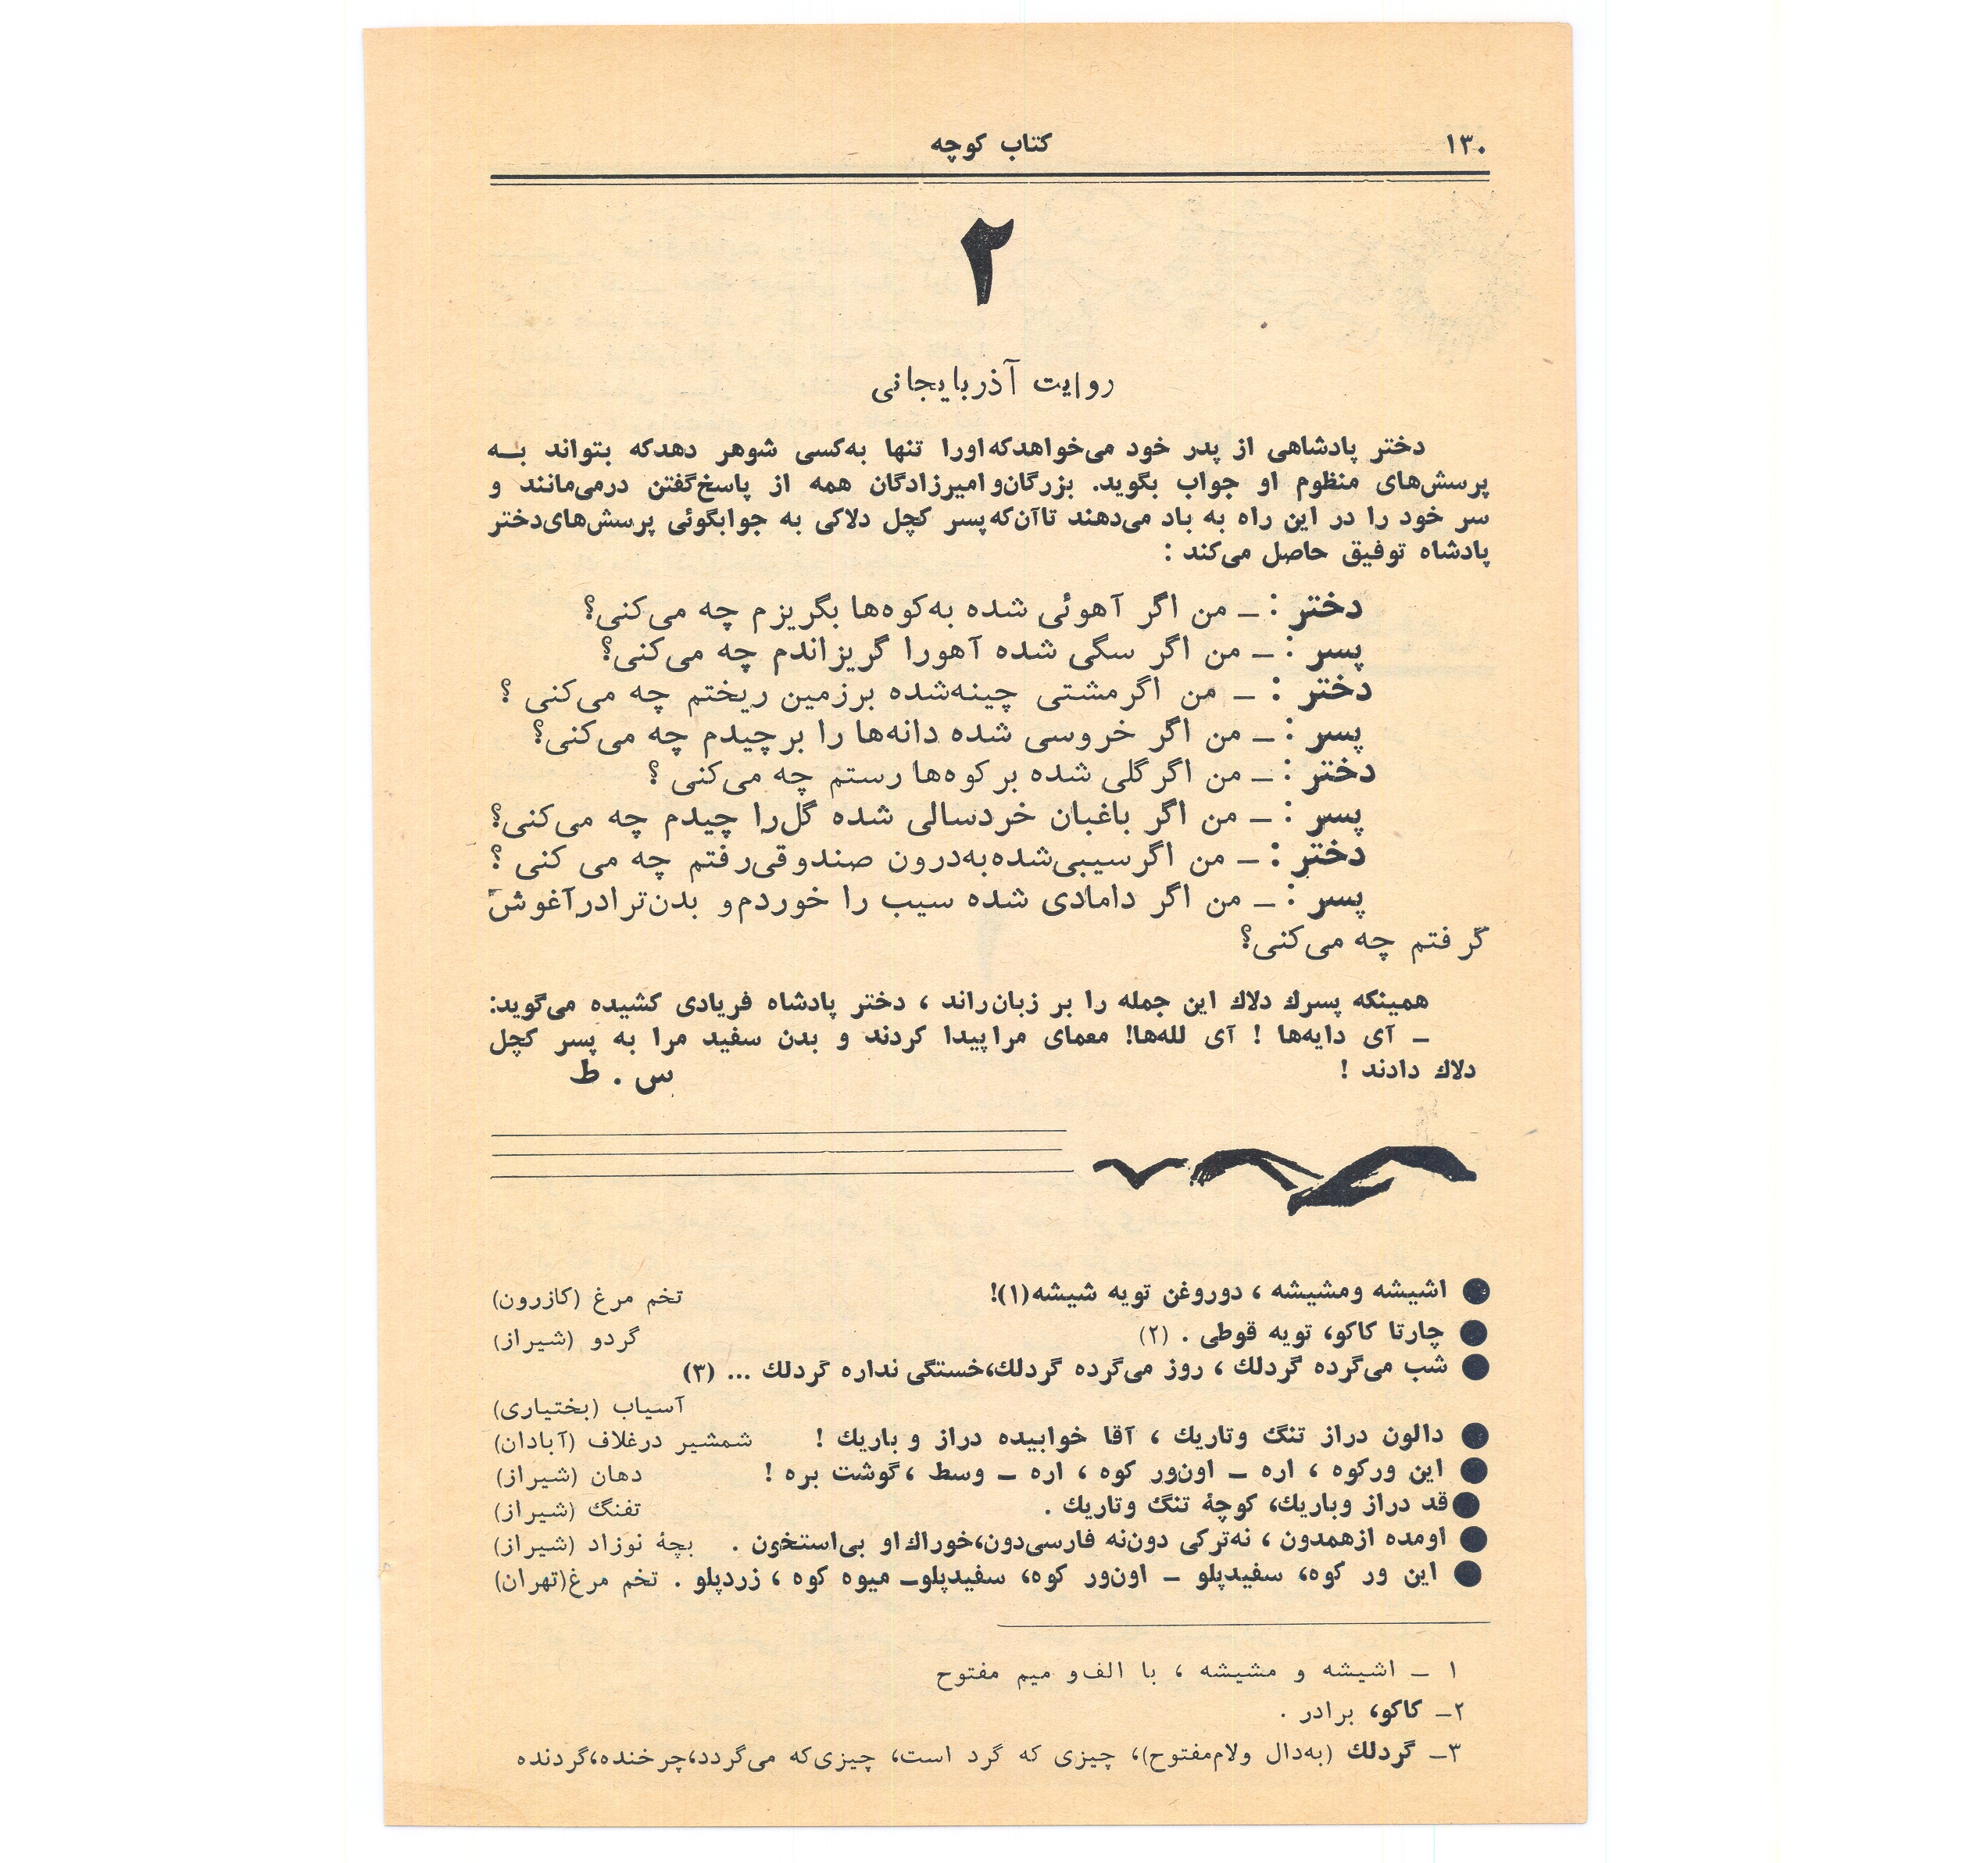 ۱۳۰
کتاب کوچه
۲
روایت آذربایجانی
دختر پادشاهی از پدر خود می‌خواهدکه‌اورا تنها به‌کسی شوهر دهدکه بتواند بــه
پرسش‌های منظوم او جواب بگوید. بزرگان‌و‌امیرزادگان همه از پاسخ‌گفتن درمی‌مانند و
سر خود را در این راه به باد می‌دهند تاآن‌که‌پسر کچل دلاکی به جوابگوئی پرسش‌های‌دختر
پادشاه توفیق حاصل می‌کند :
دختر : ــ من اگر آهوئی شده به‌کوه‌ها بگریزم چه می‌کنی؟
پسر : ــ من اگر سگی شده آهورا گریزاندم چه می‌کنی؟
دختر : ــ من اگرمشتی چینه‌شده برزمین ریختم چه می‌کنی ؟
پسر : ــ من اگر خروسی شده دانه‌ها را برچیدم چه می‌کنی؟
دختر : ــ من اگرگلی شده برکوه‌ها رستم چه می‌کنی ؟
پسر : ــ من اگر باغبان خردسالی شده گل‌را چیدم چه می‌کنی؟
دختر : ــ من اگرسیبی‌شده‌به‌درون صندوقی‌رفتم چه می کنی ؟
پسر : ــ من اگر دامادی شده سیب را خوردم‌و بدن‌ترادرآغوش
گرفتم چه می‌کنی؟
همینکه پسرك دلاك این جمله را بر زبان‌راند ، دختر پادشاه فریادی کشیده می‌گوید:
ــ آی دایه‌ها ! آی لله‌ها! معمای مراپیدا کردند و بدن سفید مرا به پسر کچل
دلاك دادند !
س . ط
● اشیشه ومشیشه ، دوروغن تویه شیشه(۱)! تخم مرغ (کازرون)
● چارتا کاکو، تویه قوطی . (۲) گردو (شیراز)
● شب می‌گرده گردلك ، روز می‌گرده گردلك،خستگی نداره گردلك ... (۳)
آسیاب (بختیاری)
● دالون دراز تنگ وتاریك ، آقا خوابیده دراز و باریك ! شمشیر درغلاف (آبادان)
● این ورکوه ، اره ــ اون‌ور کوه ، اره ــ وسط ،گوشت بره ! دهان (شیراز)
● قد دراز وباریك، کوچهٔ تنگ وتاریك . تفنگ (شیراز)
● اومده ازهمدون ، نه‌ترکی دون‌نه فارسی‌دون،خوراك‌او بی‌استخون . بچهٔ نوزاد (شیراز)
● این ور کوه، سفیدپلو ــ اون‌ور کوه، سفیدپلوــ میوه کوه ، زردپلو . تخم مرغ(تهران)
۱ ــ اشیشه و مشیشه ، با الف‌و میم مفتوح
۲ــ کاکو، برادر .
۳ــ گردلك (به‌دال ولام‌مفتوح)، چیزی که گرد است، چیزی‌که می‌گردد،چرخنده،گردنده